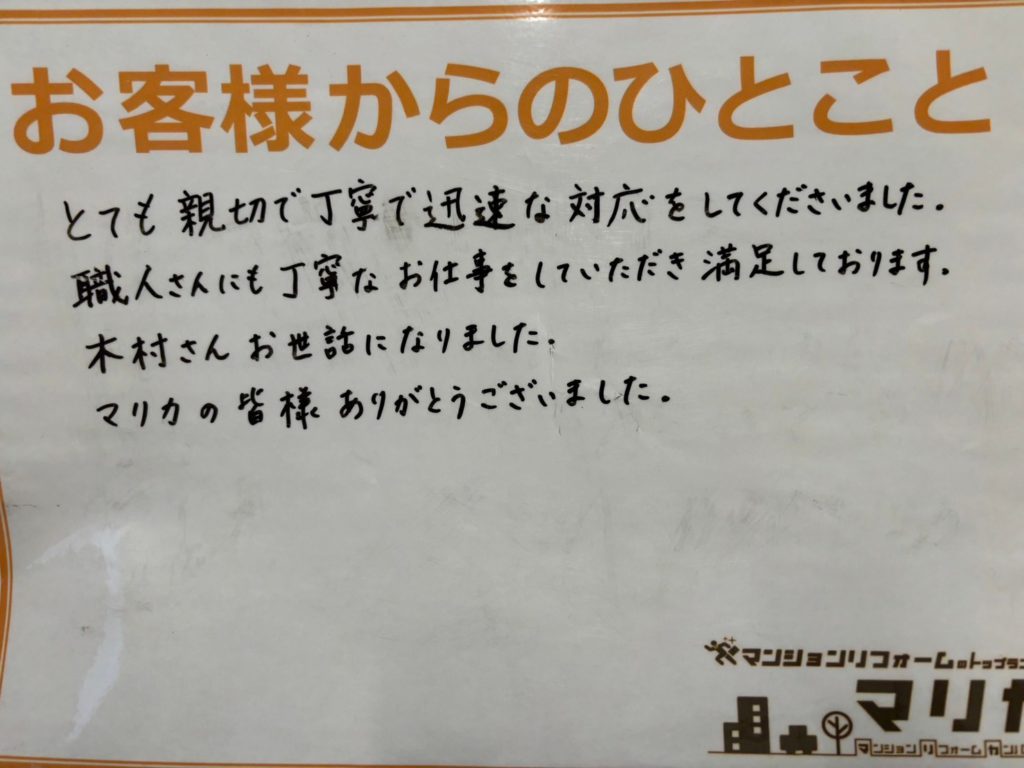 お客様からのひとこと
とても親切で丁寧で迅速な対応をしてくださいました。
職人さんにも丁寧なお仕事をしていただき満足しております。
木村さんお世話になりました。
マリカの皆様ありがとうございました。
マンションリフォームのトップラン
マリカ
マンションリフォームカンパ